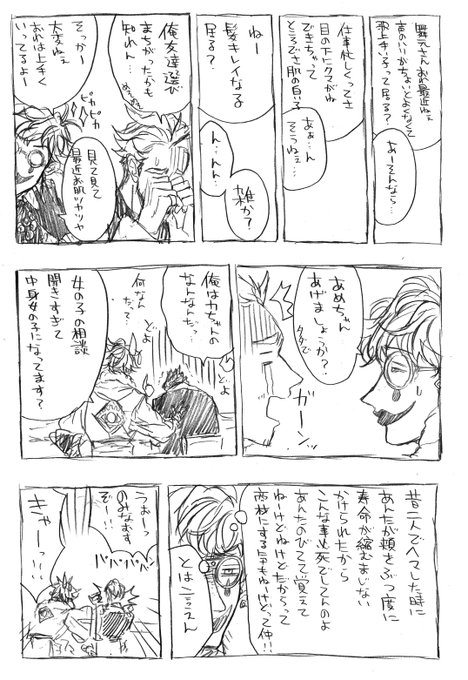 舞元さんおれ最近ねぇ
声のいいがちょいとよくなくて
歌上手い子って居る？
あーそんなら…
仕事忙しくってさ
目の下にクマがね
できちゃって
ところでさ肌の良い子
あぁ…ん
そうねぇ…
ねー
髪キレイな子
居る？
ん…んん…
雑か？
俺友達選び
まちがったかも
知れん…
そっかー
大変ねぇ
おれは上手く
いってるよー
ピカピカ
見て見て
最近お肌ツヤツヤ
あめちゃん
あげましょうか？
タダで
ガーンッ
俺は力ちゃんの
なんなんだっ…
何なん
だって？
どよ
どよ
女の子の相談
聞きすぎて
中身女の子になってます？
昔二人でヘマした時に
あんたが頬をぶつ度に
寿命が縮むまじない
かけられたから
こんな事で死んでしてんのよ
あんたのビンタって覚えて
ねーけどねけどだからって
とは言えん
うおーっ
のみなおす
ぞー!!
バババババ
きゃーっ!!